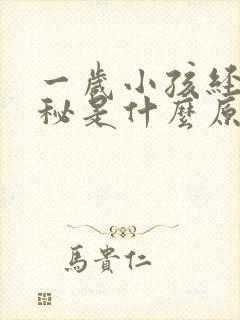 一歲小孩經
秘是什麼原
馬貴仁